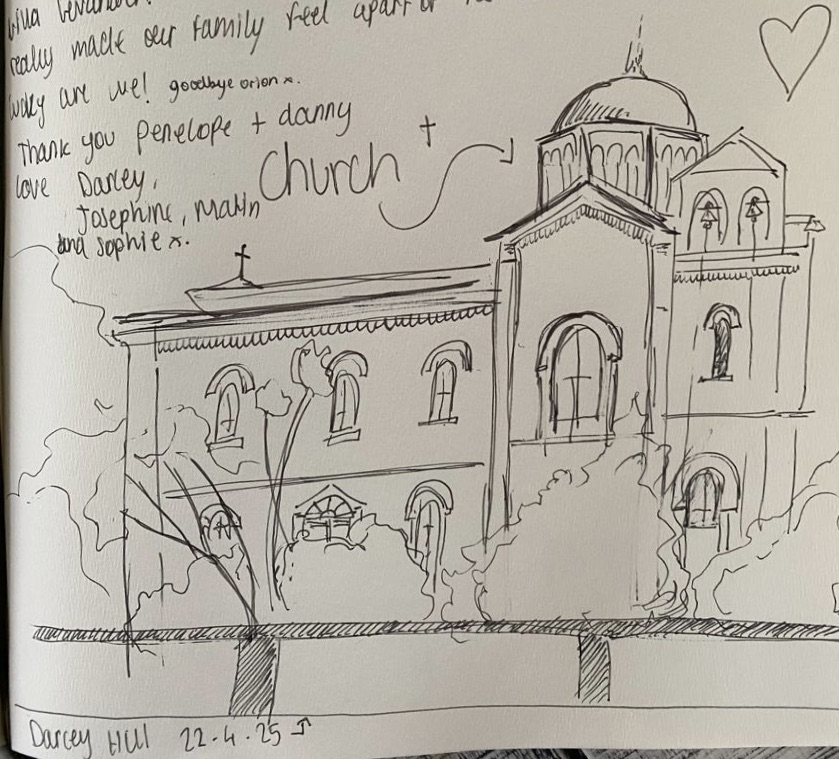 really made our family feel apart of
lucky are we! goodbye orion x.
Thank you Penelope + danny
love Darcey,
Josephine, Matin
and sophie x.
Church
Darcey Hill 22.4.25